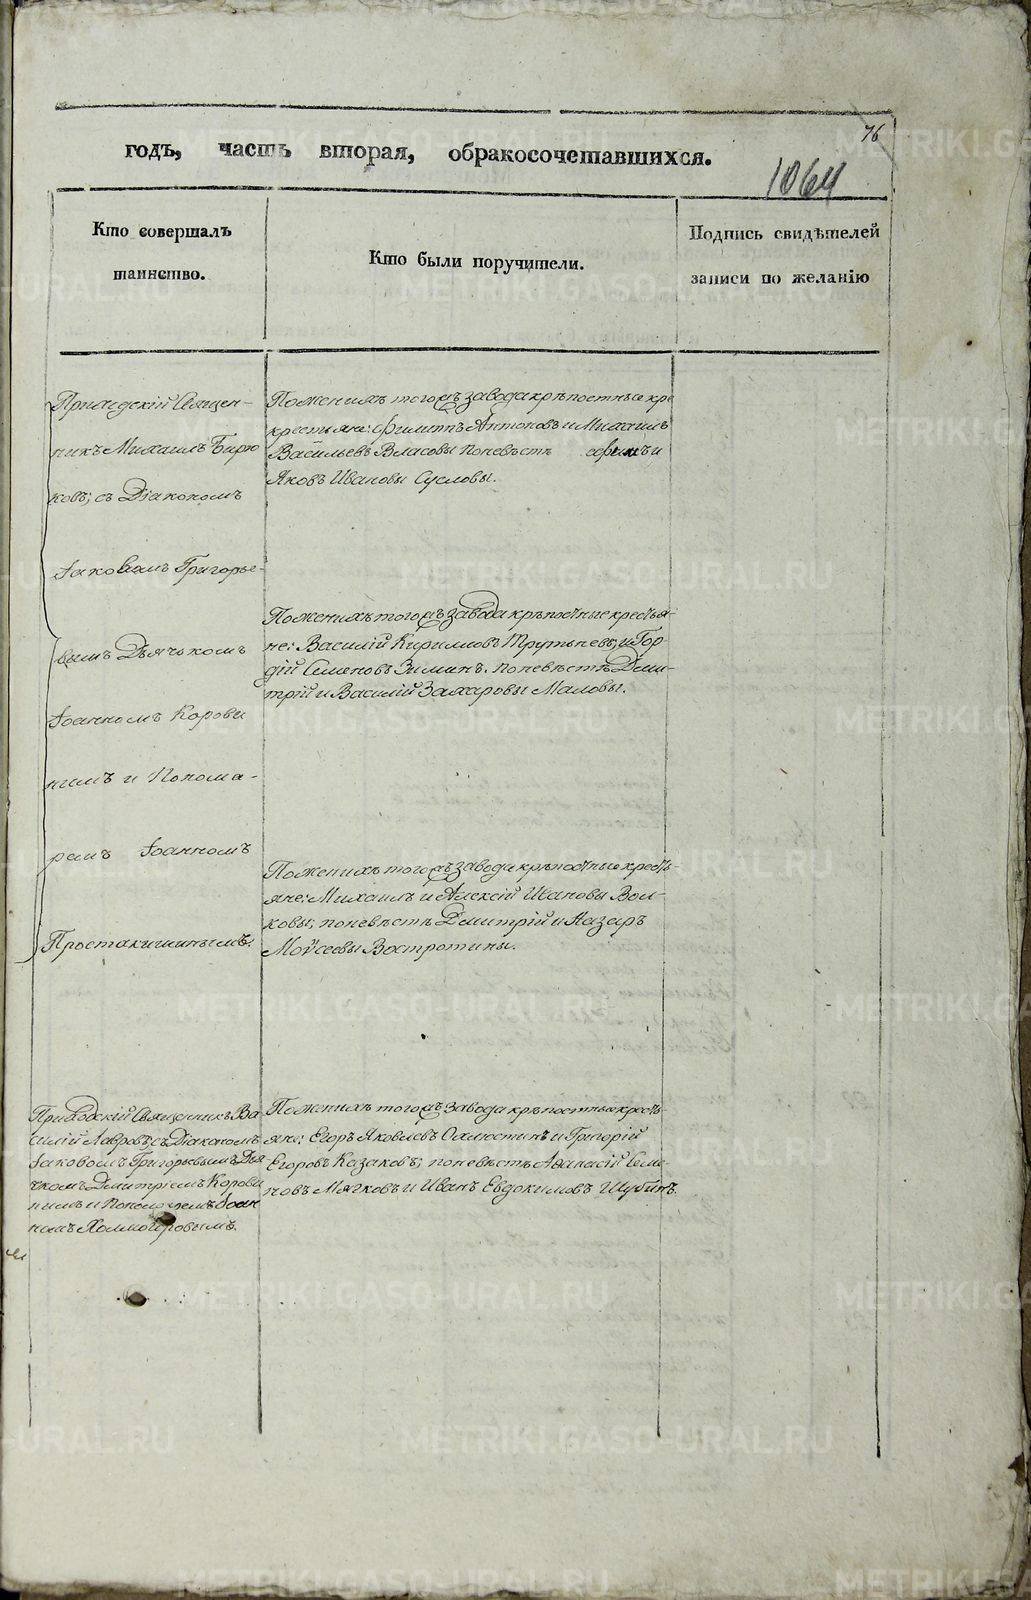 76
годъ, часть вторая, обракосочетавшихся.
1064
Кто совершалъ
таинство.
Кто были поручители.
Подпись свидѣтелей
записи по желанію
Приходскій Священ-
никъ Михаилъ Бирю
ковъ; съ Діакономъ
Іаковомъ Григорье-
вымъ Дьячькомъ
Іоанномъ Корови
нимъ и Понома-
ремъ Іоанномъ
Простакишинымъ.
Поженихѣ тогожъ завода крѣпостные кре
крестьяне: Филиппъ Антоновъ и Михаилъ
Васильевъ Власовы поневѣстѣ и
Яковъ Ивановы Сусловы.
Поженихѣ тогожъ завода крѣпостные крестья-
не: Василій Кириловъ Трутьневъ, и Гор
дій Семеновъ Зиминъ. поневѣстѣ Дми-
трій и Василій Захаровы Маловы.
Поженихѣ тогожъ завода крѣпостные кресть-
яне: Михаилъ и Алексій Ивановы Вол-
ковы; поневѣстѣ Дмитрій и Назаръ
Мойсеевы Востротины.
Приходскій Священникъ Ва
силій Лавровъ; съ Діакономъ
Іаковомъ Григорьевымъ Дья-
чкомъ Димитріемъ Корови
нимъ и Пономаремъ Іоан
номъ Холмогоровымъ.
Поженихѣ тогожъ завода крѣпостные кресть
яне: Егоръ Яковлевъ Охлюстинъ и Григорій
Егоровъ Казаковъ; поневѣстѣ Афанасій Семе
новъ Мягковъ и Иванъ Евдокимовъ Шубинъ.
METRIKI.GASO-URAL.RU